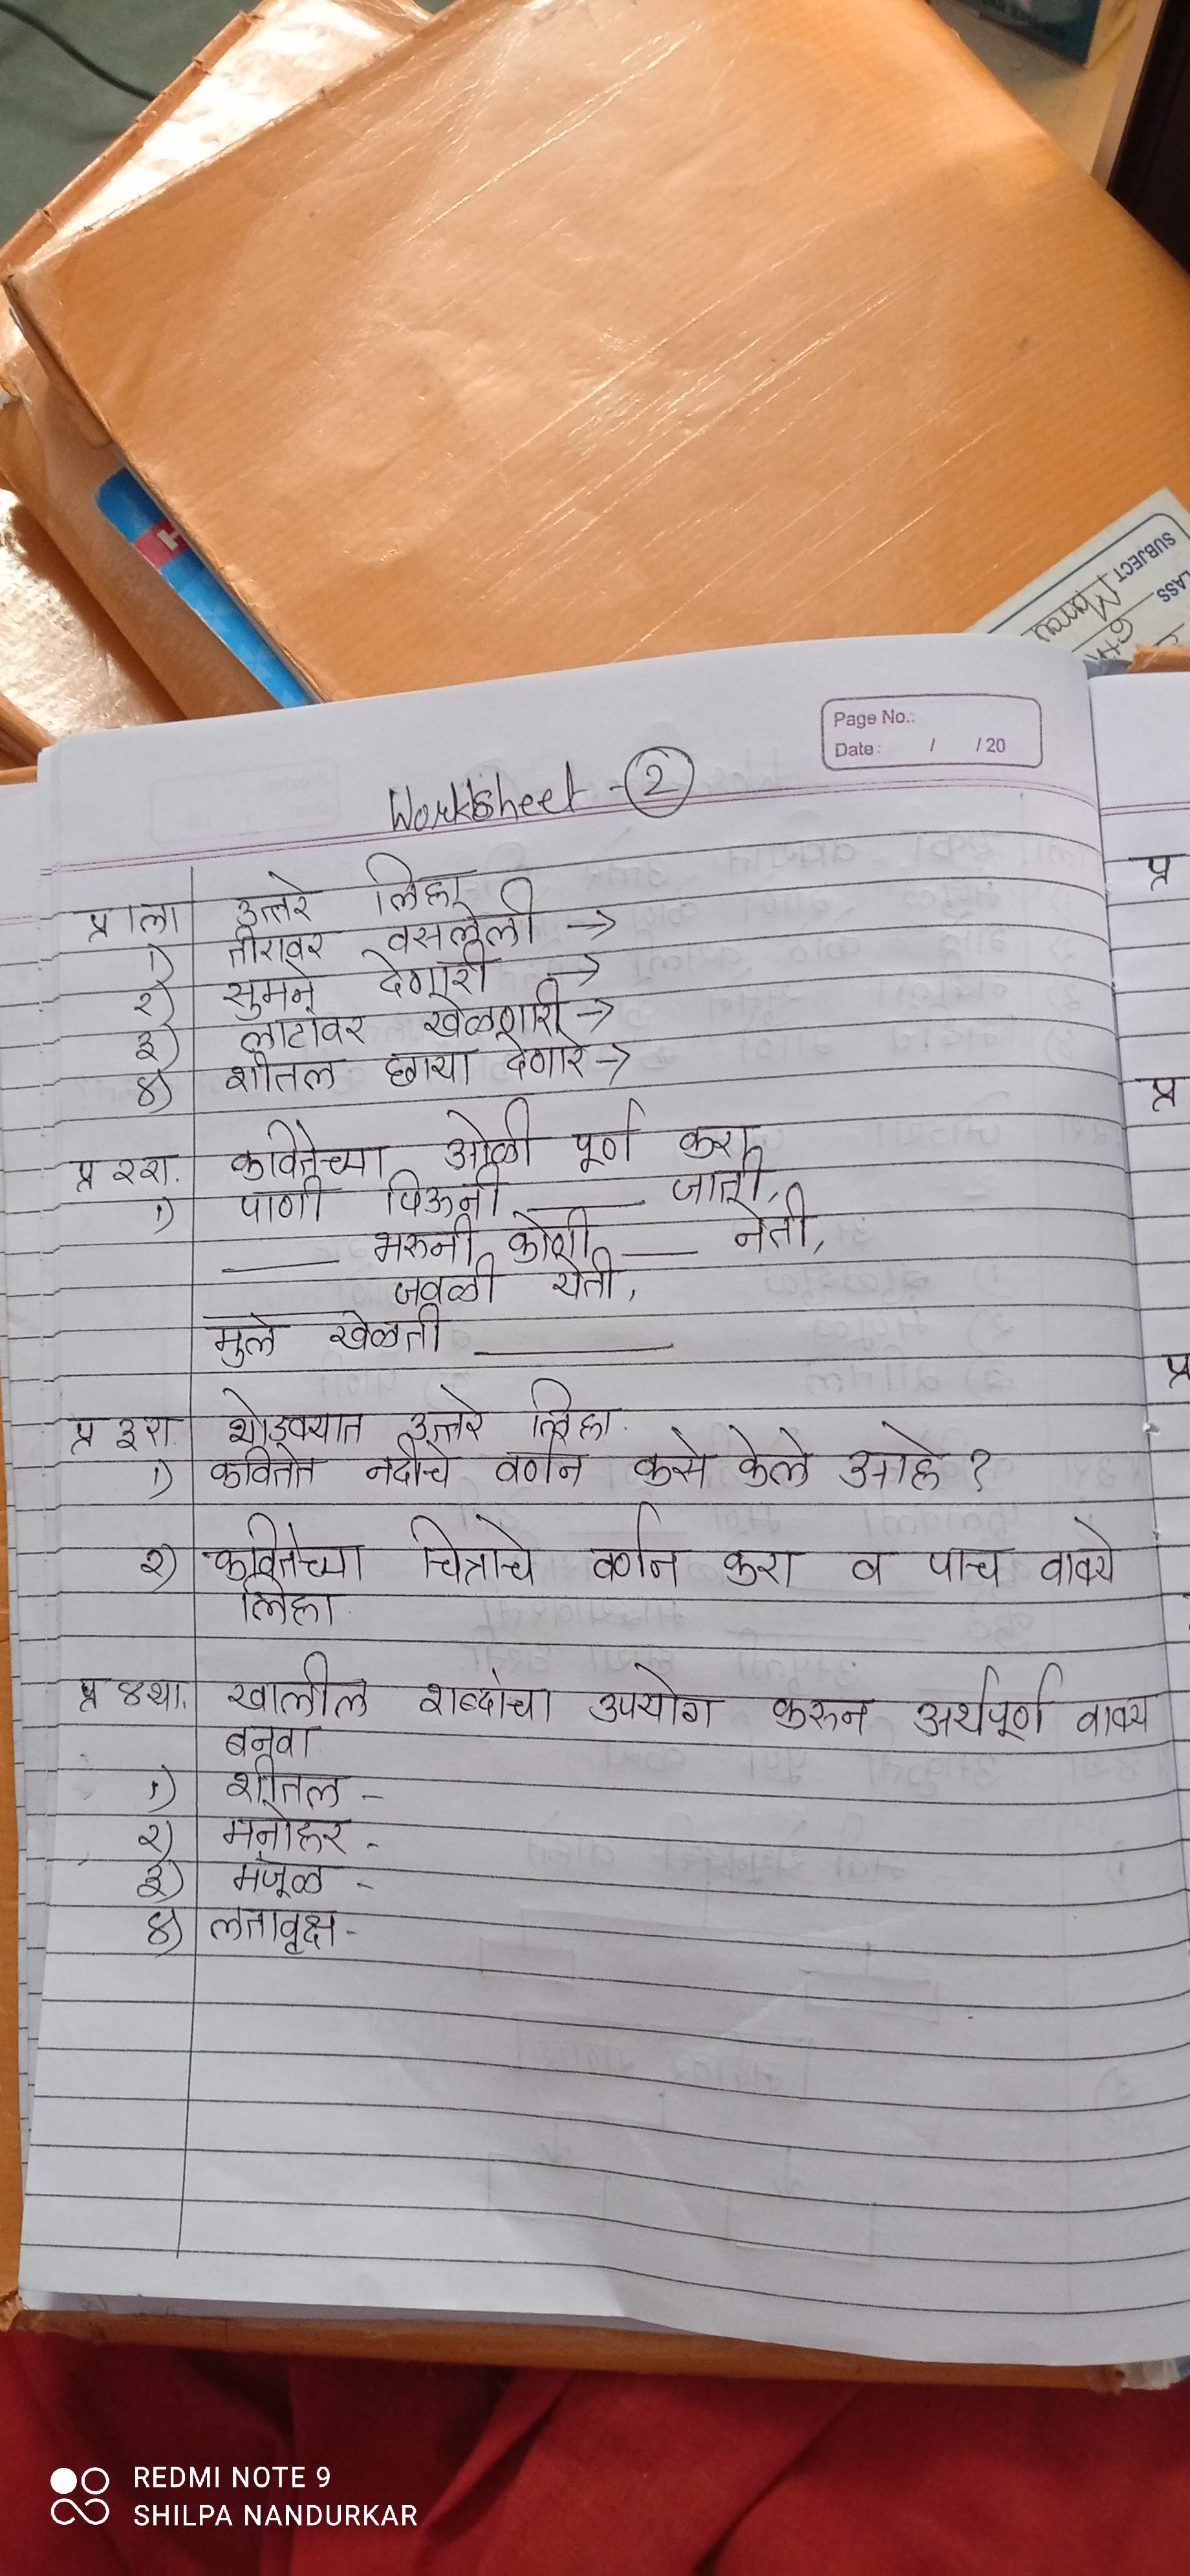 SUBJECT
Page No.:
Date: / / 20
Worksheet - 2
प्र १ला उत्तरे लिहा
१) तीरावर वसलेली →
२) सुमने देणारी →
३) लाटांवर खेळणारी →
४) शीतल छाया देणारे →
प्र २रा. कवितेच्या ओळी पूर्ण करा
१) पाणी पिऊनी ____ जाती,
____ भरुनी कोणी ___ नेती,
____ जवळी येती,
मुले खेळती ____
प्र ३रा. थोडक्यात उत्तरे लिहा.
१) कवितेत नदीचे वर्णन कसे केले आहे?
२) कवितेच्या चित्राचे वर्णन करा व पाच वाक्ये
लिहा.
प्र ४था. खालील शब्दांचा उपयोग करुन अर्थपूर्ण वाक्य
बनवा
१) शीतल -
२) मनोहर -
३) मंजूळ -
४) लतावृक्ष -
प्र
प्र
प्र
REDMI NOTE 9
SHILPA NANDURKAR